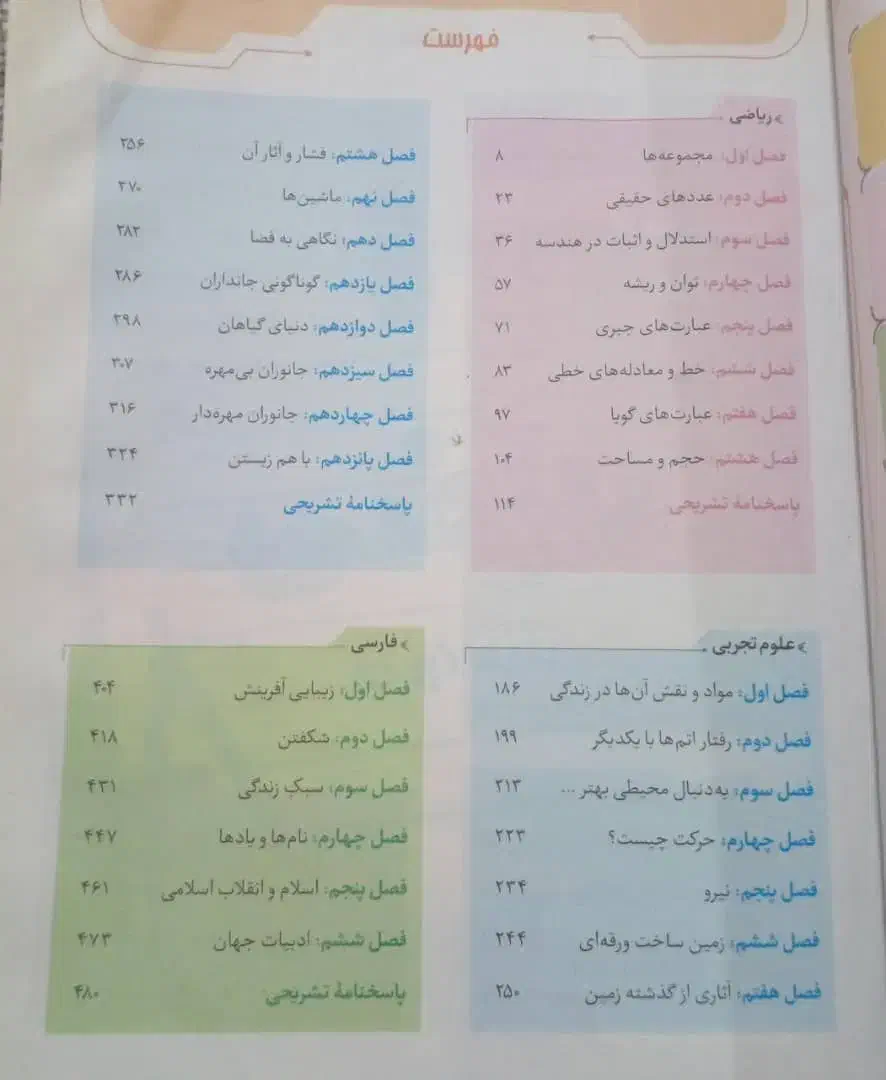 فهرست
ریاضی
فصل اول: مجموعه‌ها ۸
فصل دوم: عددهای حقیقی ۲۳
فصل سوم: استدلال و اثبات در هندسه ۳۶
فصل چهارم: توان و ریشه ۵۷
فصل پنجم: عبارت‌های جبری ۷۱
فصل ششم: خط و معادله‌های خطی ۸۳
فصل هفتم: عبارت‌های گویا ۹۷
فصل هشتم: حجم و مساحت ۱۰۴
پاسخنامهٔ تشریحی ۱۱۴
علوم تجربی
فصل اول: مواد و نقش آن‌ها در زندگی ۱۸۶
فصل دوم: رفتار اتم‌ها با یکدیگر ۱۹۹
فصل سوم: به‌دنبال محیطی بهتر ... ۲۱۳
فصل چهارم: حرکت چیست؟ ۲۲۳
فصل پنجم: نیرو ۲۳۴
فصل ششم: زمین ساخت ورقه‌ای ۲۴۴
فصل هفتم: آثاری از گذشته زمین ۲۵۰
فصل هشتم: فشار و آثار آن ۲۵۶
فصل نهم: ماشین‌ها ۲۷۰
فصل دهم: نگاهی به فضا ۲۸۲
فصل یازدهم: گوناگونی جانداران ۲۸۶
فصل دوازدهم: دنیای گیاهان ۲۹۸
فصل سیزدهم: جانوران بی‌مهره ۳۰۷
فصل چهاردهم: جانوران مهره‌دار ۳۱۶
فصل پانزدهم: با هم زیستن ۳۲۴
پاسخنامهٔ تشریحی ۳۳۲
فارسی
فصل اول: زیبایی آفرینش ۴۰۴
فصل دوم: شکفتن ۴۱۸
فصل سوم: سبکِ زندگی ۴۳۱
فصل چهارم: نام‌ها و یادها ۴۴۷
فصل پنجم: اسلام و انقلاب اسلامی ۴۶۱
فصل ششم: ادبیات جهان ۴۷۳
پاسخنامهٔ تشریحی ۴۸۰